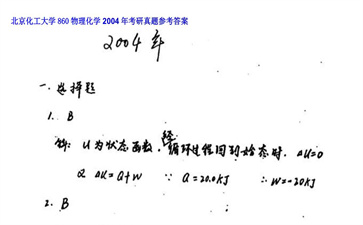 北京化工大学 860 物理化学 2004 年考研真题参考答案
2004 年
一. 选择题
1. B
解: U 为状态函数, 经循环过程回到始态时, ΔU=0
又 ΔU=Q+W ∵ Q=20.0kJ ∴ W=-20kJ
2. B